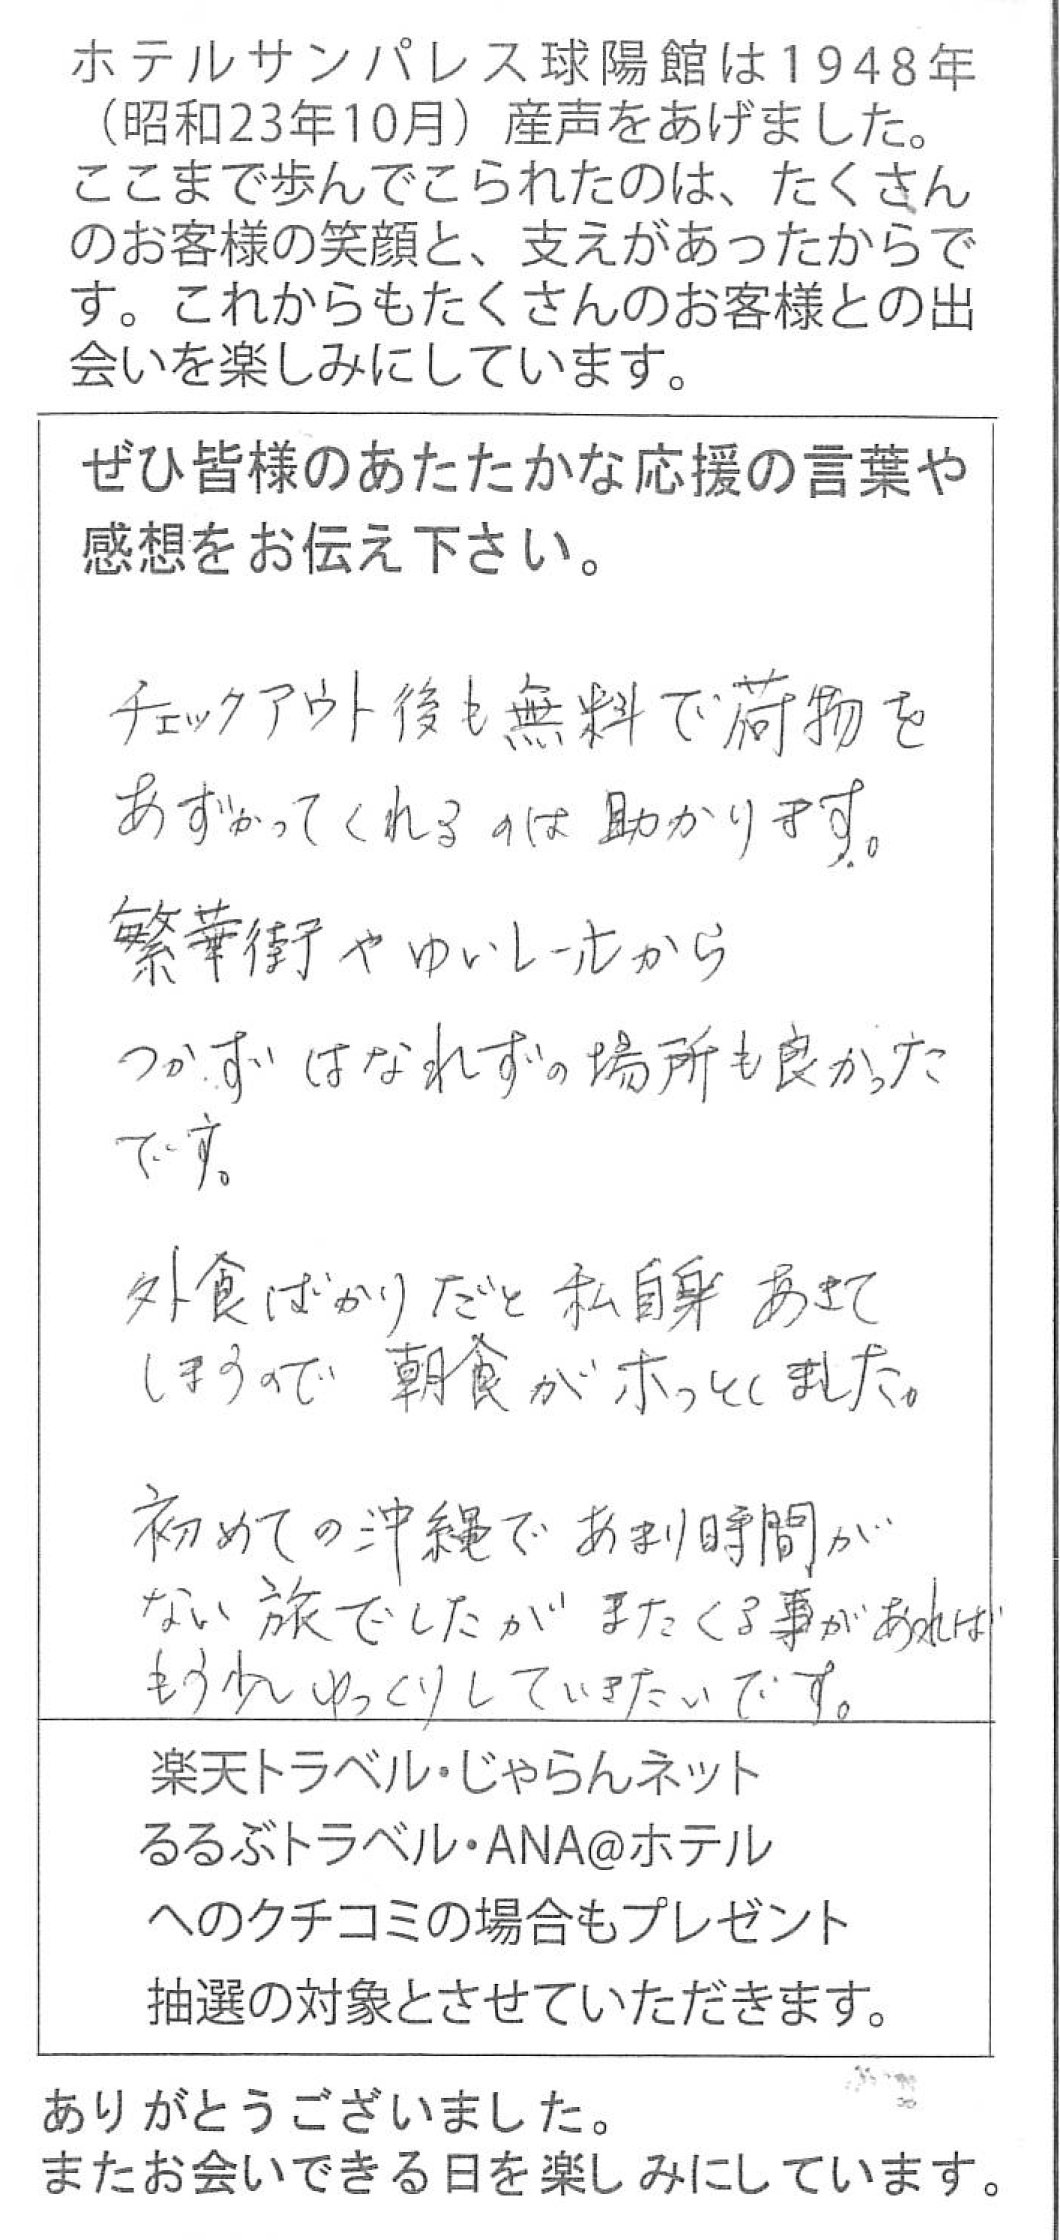 ホテルサンパレス球陽館は1948年
（昭和23年10月）産声をあげました。
ここまで歩んでこられたのは、たくさん
のお客様の笑顔と、支えがあったからで
す。これからもたくさんのお客様との出
会いを楽しみにしています。
ぜひ皆様のあたたかな応援の言葉や
感想をお伝え下さい。
チェックアウト後も無料で荷物を
あずかってくれるのは助かります。
繁華街やゆいレールから
つかずはなれずの場所も良かった
です。
外食ばかりだと私自身あきて
しまうので朝食がホっとしました。
初めての沖縄であまり時間が
ない旅でしたがまたくる事があれば
もう少しゆっくりしていきたいです。
楽天トラベル・じゃらんネット
るるぶトラベル・ANA@ホテル
へのクチコミの場合もプレゼント
抽選の対象とさせていただきます。
ありがとうございました。
またお会いできる日を楽しみにしています。